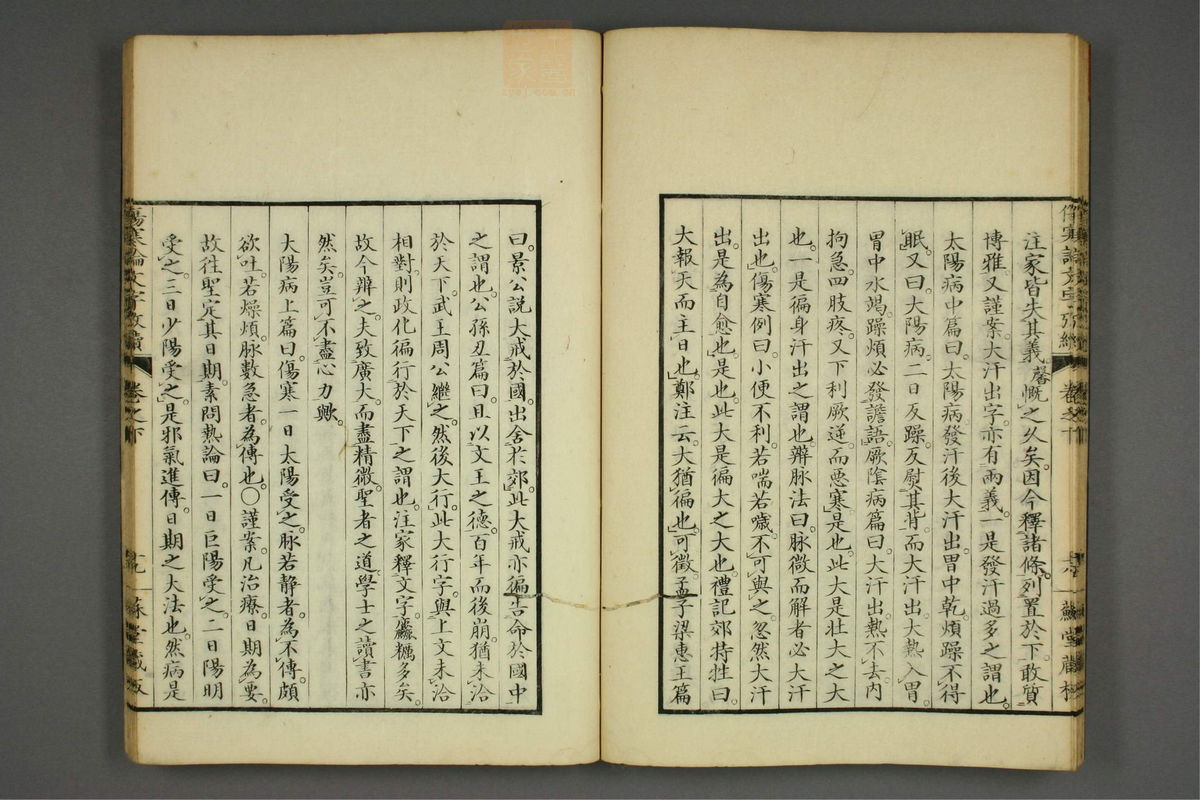 注家皆失其義。馨慨之久矣。因今釋諸條。列置於下。敢質
博雅。又謹案。大汗出字。亦有兩義。一是發汗過多之謂也。
太陽病中篇曰。太陽病。發汗後大汗出。胃中乾。煩躁不得
眠。又曰。大陽病。二日反躁。反熨其背。而大汗出。大熱入胃。
胃中水竭。躁煩必發譫語。厥陰病篇曰。大汗出。熱不去。內
拘急。四肢疼。又下利厥逆。而惡寒。是也。此大是壯大之大
也。一是徧身汗出之謂也。辨脉法曰。脉微而解者。必大汗
出也。傷寒例曰。小便不利。若喘若噦。不可與之。忽然大汗
出。是為自愈也。是也。此大是徧大之大也。禮記郊特牲曰。
大報天而主日也。鄭注云。大猶徧也。可徵。孟子梁惠王篇
曰。景公說。大戒於國。出舍於郊。此大戒。亦徧告命於國中
之謂也。公孫丑篇曰。且以文王之德。百年而後崩。猶未洽
於天下。武王周公繼之。然後大行。此大行字。與上文未洽
相對。則政化徧行於天下之謂也。注家釋文字。麤糲多矣。
故今辨之。夫致廣大。而盡精微。聖者之道。學士之讀書亦
然矣。豈可不盡心力歟。
大陽病上篇曰。傷寒一日。太陽受之。脉若靜者。為不傳。頗
欲吐。若燥煩。脉數急者。為傳也。〇謹案。凡治療。日期為要。
故往聖定其日期。素問熱論曰。一日巨陽受之。二日陽明
受之。三日少陽受之。是邪氣進傳。日期之大法也。然病是
傷寒論文字攷續
卷之下